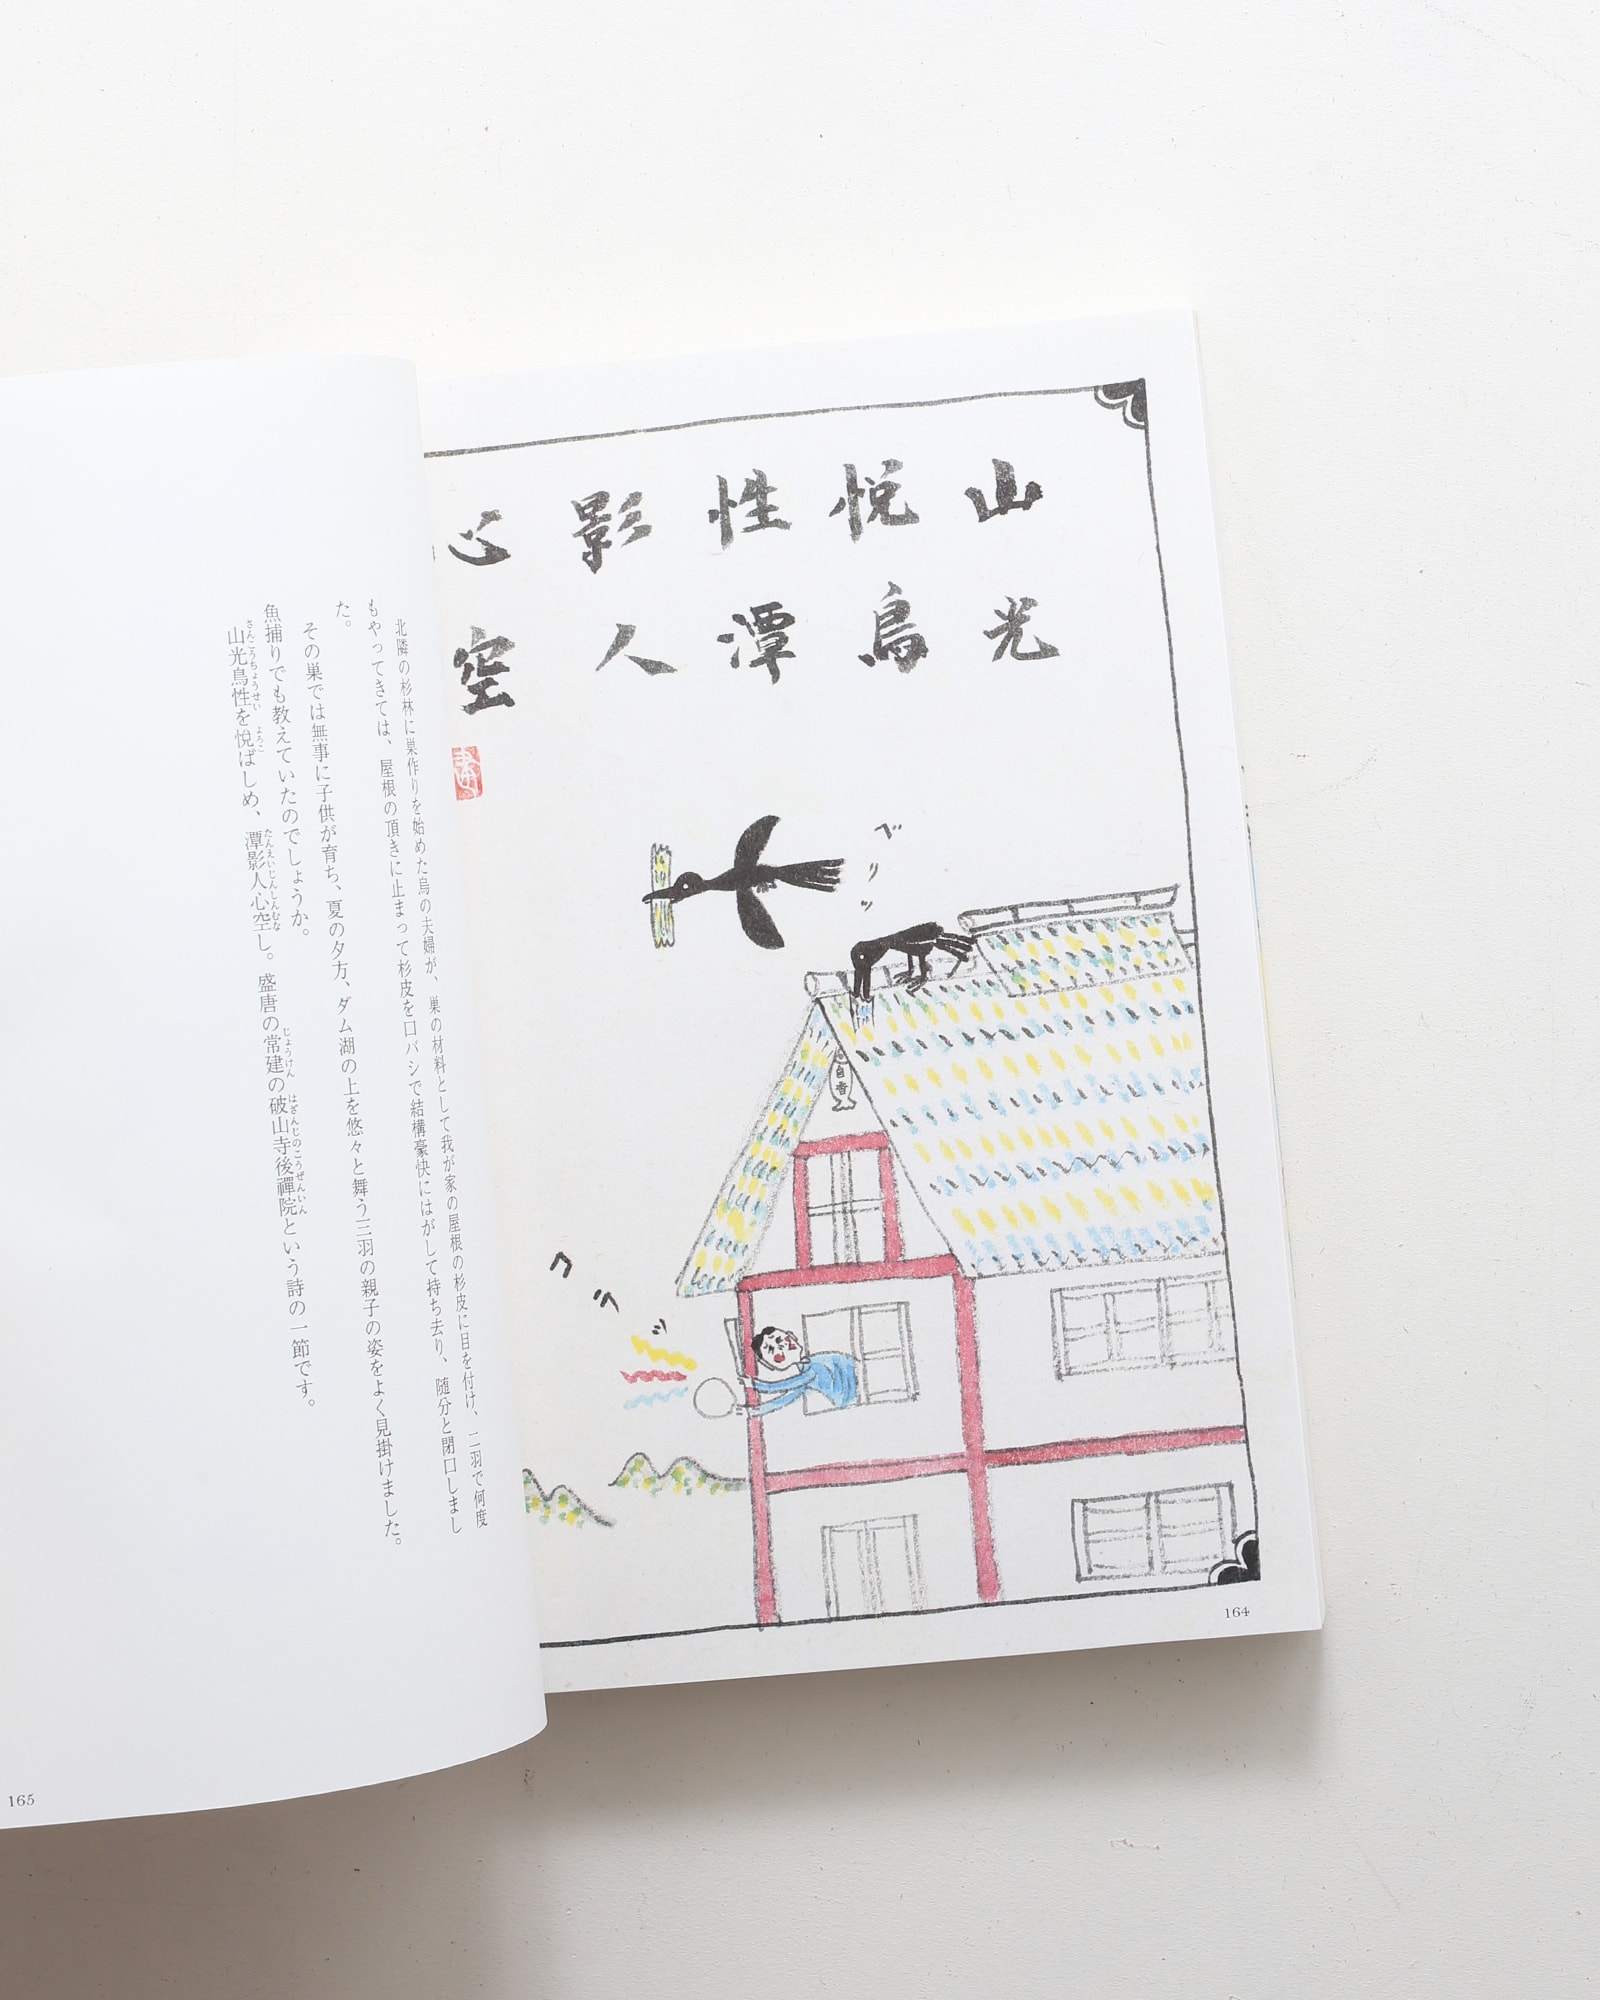 山光
悦鳥
性潭
影人
心空
ベリッ
自香
コラッ
164
北隣の杉林に巣作りを始めた烏の夫婦が、巣の材料として我が家の屋根の杉皮に目を付け、二羽で何度
もやってきては、屋根の頂きに止まって杉皮を口バシで結構豪快にはがして持ち去り、随分と閉口しまし
た。
その巣では無事に子供が育ち、夏の夕方、ダム湖の上を悠々と舞う三羽の親子の姿をよく見掛けました。
魚捕りでも教えていたのでしょうか。
山光鳥性を悦ばしめ、潭影人心空し。盛唐の常建の破山寺後禪院という詩の一節です。
さんこうちょうせい よろこ たんえいじんしんむな じょうけん はざんじのこうぜんいん
165